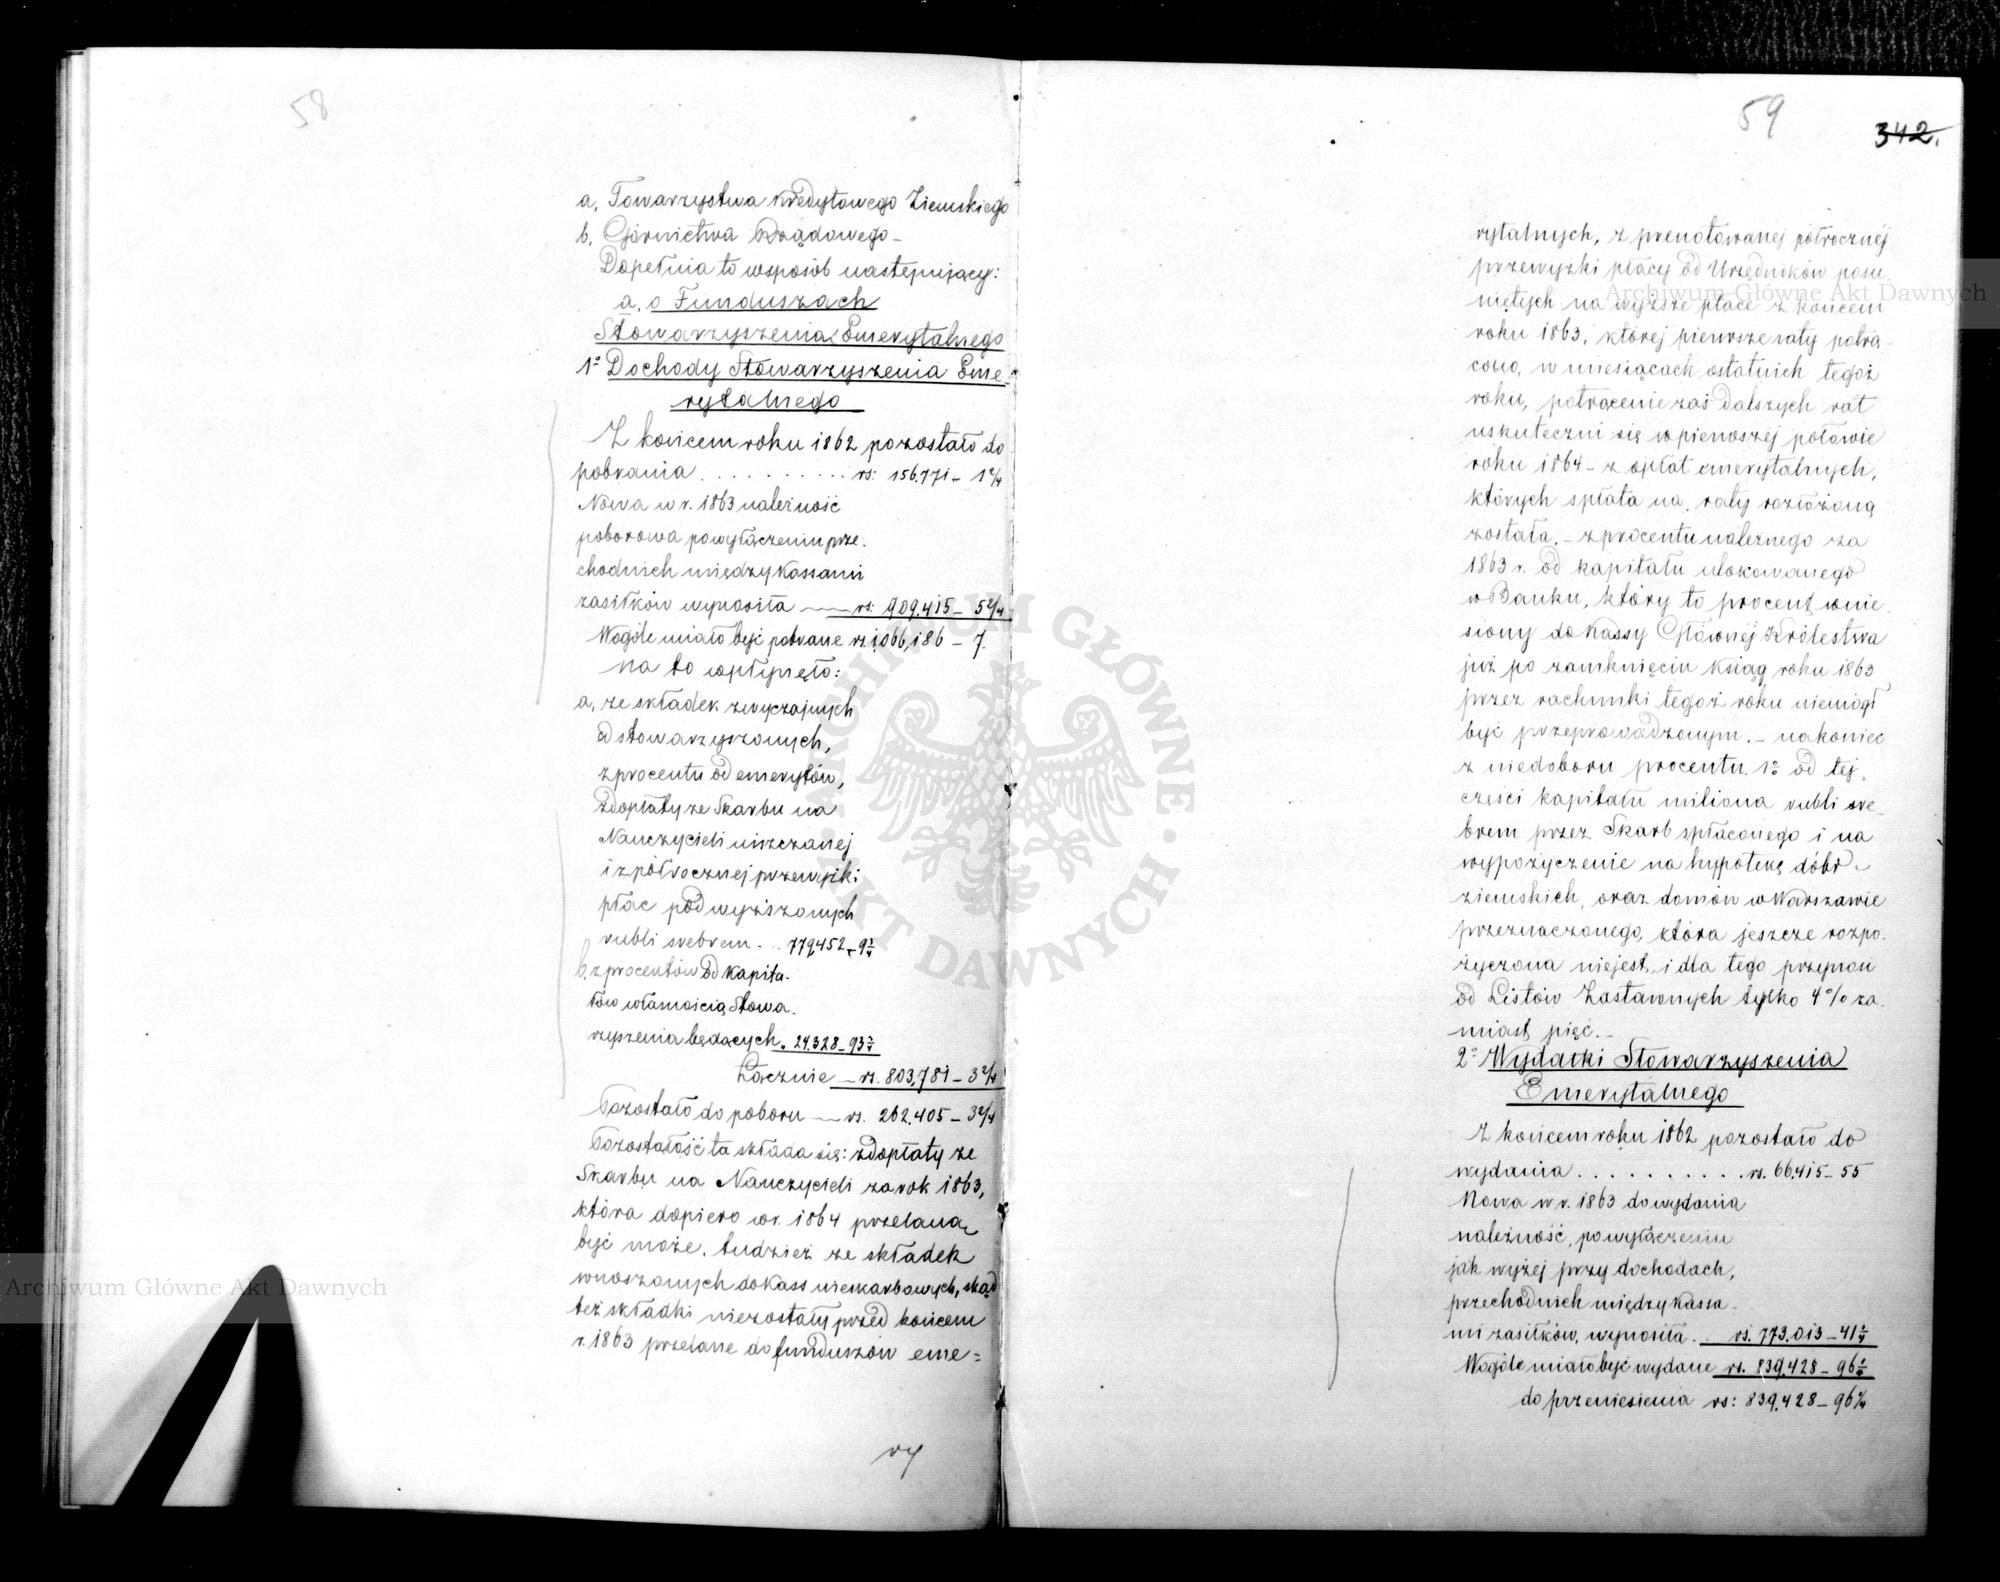 58
a. Towarzystwa Kredytowego Ziemskiego
b. Górnictwa Rządowego –
Dopełnia to wsposób następujący:
a. o Funduszach
Stowarzyszenia Emerytalnego
1° Dochody Stowarzyszenia Eme-
rytalnego
Z końcem roku 1862 pozostało do
pobrania . . . . . . . . . . rs: 156.771 – 1 2/4
Nowa w r. 1863 należność
poborowa po wyłączeniu prze-
chodnich między Kassami
zasiłków wynosiła — rs: 909.415 – 5 2/4
Wogóle miało być pobrane rs. 1,066,186 – 7.
na to wpłynęło:
a, ze składek zwyczajnych
od stowarzyszonych,
z procentu od emerytów,
z dopłaty ze Skarbu na
Nauczycieli uiszczanej
i z półrocznej przewyżki
płac podwyższonych
rubli srebrem . . . 779,452 – 9 3/4
b. z procentów od kapita-
łów własnością Stowa-
rzyszenia będących „ 24.328 – 93 3/4
Łącznie — rs. 803,781 – 3 2/4
Pozostało do poboru — rs. 262.405 – 3 2/4
Pozostałość ta składa się: z dopłaty ze
Skarbu na Nauczycieli za rok 1863,
która dopiero w r. 1864 przelaną
być może, tudzież ze składek
wnoszonych do Kass nieskarbowych, skąd
też składki niezostały przed końcem
r. 1863 przelane do funduszów eme=
ry
59
342.
rytalnych, z prenotowanej półrocznéj
przewyżki płacy od Urzędników posu-
niętych na wyższe płace z końcem
roku 1863, której pierwsze raty potrą-
cono, w miesiącach ostatnich tegoż
roku, potrącenie zaś dalszych rat
uskuteczni się w pierwszej połowie
roku 1864 – z opłat emerytalnych,
których spłata na raty rozłożoną
została, – z procentu należnego za
1863 r. od kapitału ulokowanego
w Banku, który to procent wnie-
siony do Kassy Głównéj Królestwa
już po zamknięciu Ksiąg roku 1863
przez rachunki tegoż roku niemógł
być przeprowadzonym. – nakoniec
z niedoboru procentu 1° od téj
części kapitału miliona rubli sre-
brem przez Skarb spłaconego i na
wypożyczenie na hypotekę dóbr
ziemskich, oraz domów w Warszawie
przeznaczonego, która jeszcze rozpo-
życzona niejest, i dla tego przynosi
od Listów Zastawnych tylko 4% za-
miast pięć. –
2° Wydatki Stowarzyszenia
Emerytalnego
Z końcem roku 1862 pozostało do
wydania . . . . . . . . . . rs. 66,415 – 55
Nowa w r. 1863 do wydania
należność, po wyłączeniu
jak wyżej przy dochodach,
przechodnich między Kassa-
mi zasiłków, wynosiła . . rs. 773.013 – 41 2/4
Wogóle miało być wydane rs. 839.428 – 96 2/4
do przeniesienia rs: 839.428 – 96 2/4
Archiwum Główne Akt Dawnych
Archiwum Główne Akt Dawnych
ARCHIWUM GŁÓWNE AKT DAWNYCH